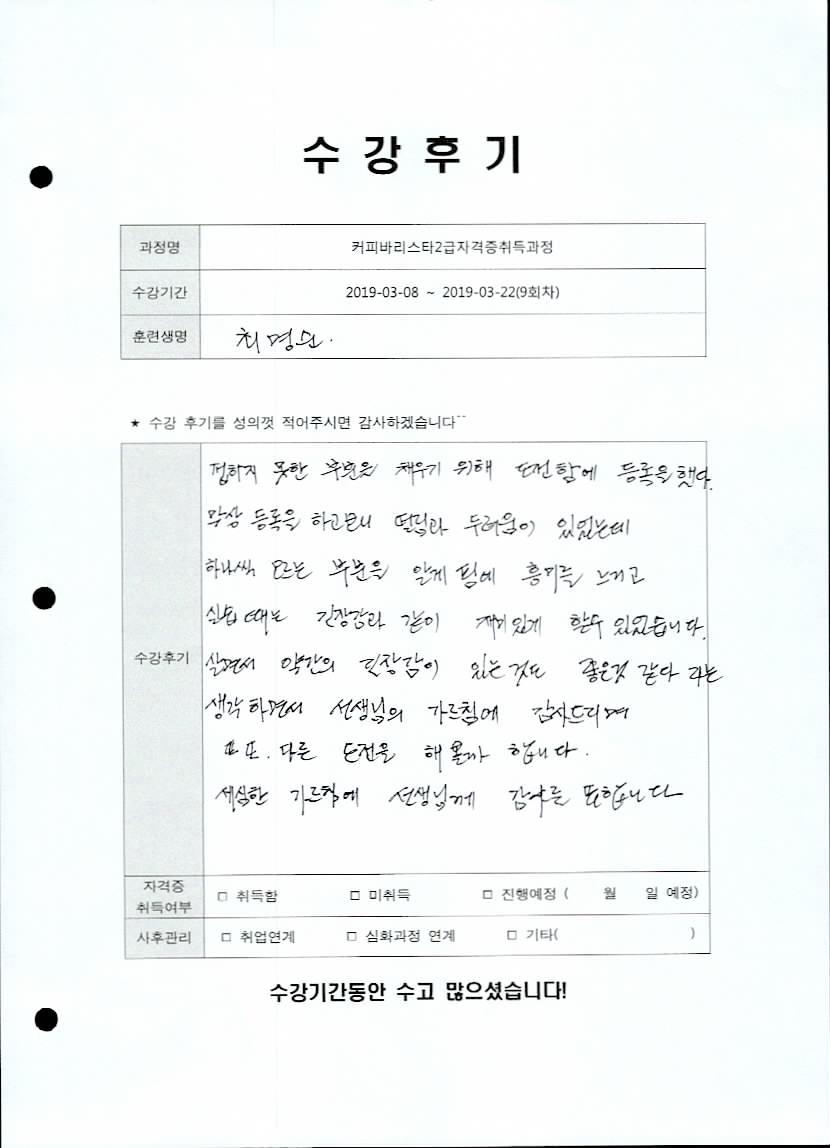 수 강 후 기
과정명 커피바리스타2급자격증취득과정
수강기간 2019-03-08 ~ 2019-03-22(9회차)
훈련생명 최명순.
★ 수강 후기를 성의껏 적어주시면 감사하겠습니다^^
수강후기
접하지 못한 부분을 채우기 위해 도전함에 등록을 했다.
막상 등록을 하고보니 떨림과 두려움이 있었는데
하나씩 모르는 부분을 알게 됨에 흥미를 느끼고
실습 때는 긴장감과 같이 재미있게 할수 있었습니다.
살면서 약간의 긴장감이 있는것도 좋은것 같다 라는
생각 하면서 선생님의 가르침에 감사드리며
또 다른 도전을 해 볼까 합니다.
세심한 가르침에 선생님께 감사를 표합니다
자격증 취득여부 □ 취득함 □ 미취득 □ 진행예정 ( 월 일 예정)
사후관리 □ 취업연계 □ 심화과정 연계 □ 기타( )
수강기간동안 수고 많으셨습니다!